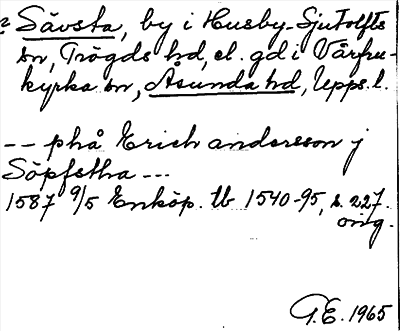 ? Sävsta, by i Husby-Sjutolfts
sn, Trögds hd, el. gd i Vårfru-
kyrka sn, Åsunda hd, Upps. l.
-- phå Erich andersson j
Söpfstha ---
1587 9/5 Enköp. tb 1540-95, s. 227.
orig.
G.E. 1965